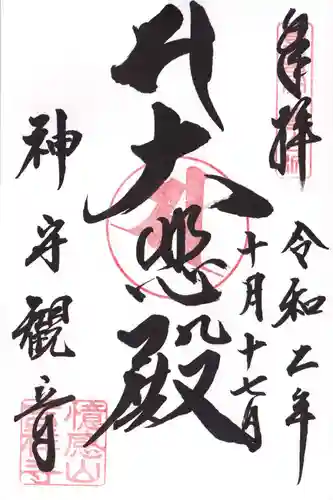 奉拝
令和二年
十月十七日
大悲殿
神守觀音